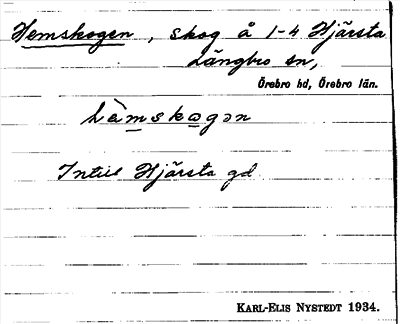 Hemskogen, skog å 1-4 Hjärsta
Längbro sn,
Örebro hd, Örebro län.
hèmskogən
Intill Hjärsta gd
KARL-ELIS NYSTEDT 1934.